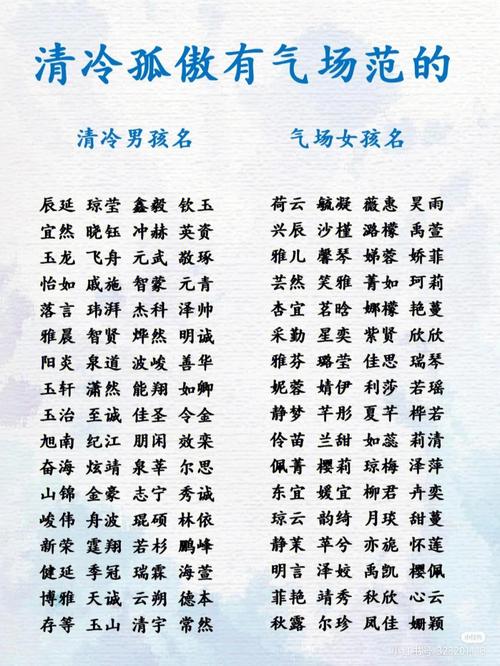 清冷孤傲有气场范的
清冷男孩名
辰延 琼莹 鑫毅 钦玉
宜然 晓钰 冲赫 英资
玉龙 飞舟 元武 敬琢
怡如 戚施 智蒙 元青
落言 玮湃 杰科 泽帅
雅晨 智贤 烨然 明诚
阳炎 泉道 波峻 善华
玉轩 潇然 能翔 如卿
玉治 至诚 佳圣 令金
旭南 纪江 朋闲 效栾
奋海 炫靖 泉莘 尔思
山锦 金豪 志宁 秀诚
峻伟 舟波 琨硕 林依
新荣 霆翔 若杉 鹏峰
健延 季冠 瑞霖 海萱
博雅 天诚 云朔 德本
存等 玉山 清宇 常然
气场女孩名
荷云 毓凝 薇惠 昊雨
兴辰 沙槿 潞檬 禹萱
雅儿 馨琴 娣蓉 娇菲
芸然 笑雅 菁如 珂莉
杏宜 茗晗 娜檬 艳蔓
采勤 星奕 紫贤 欣欣
雅芬 璐莹 佳思 瑞琴
妮蓉 婧伊 利莎 若瑶
静梦 芊彤 夏芊 桦若
伶苗 兰甜 如蕊 莉清
佩菁 樱莉 琼梅 泽萍
东宜 媛宜 柳君 卉奕
琼云 韵绮 月琰 甜蔓
静茉 苹兮 亦旎 怀莲
明言 泽姣 禹凯 樱佩
菲艳 靖秀 秋欣 心云
秋露 尔珍 凤佳 姗颖
小红书